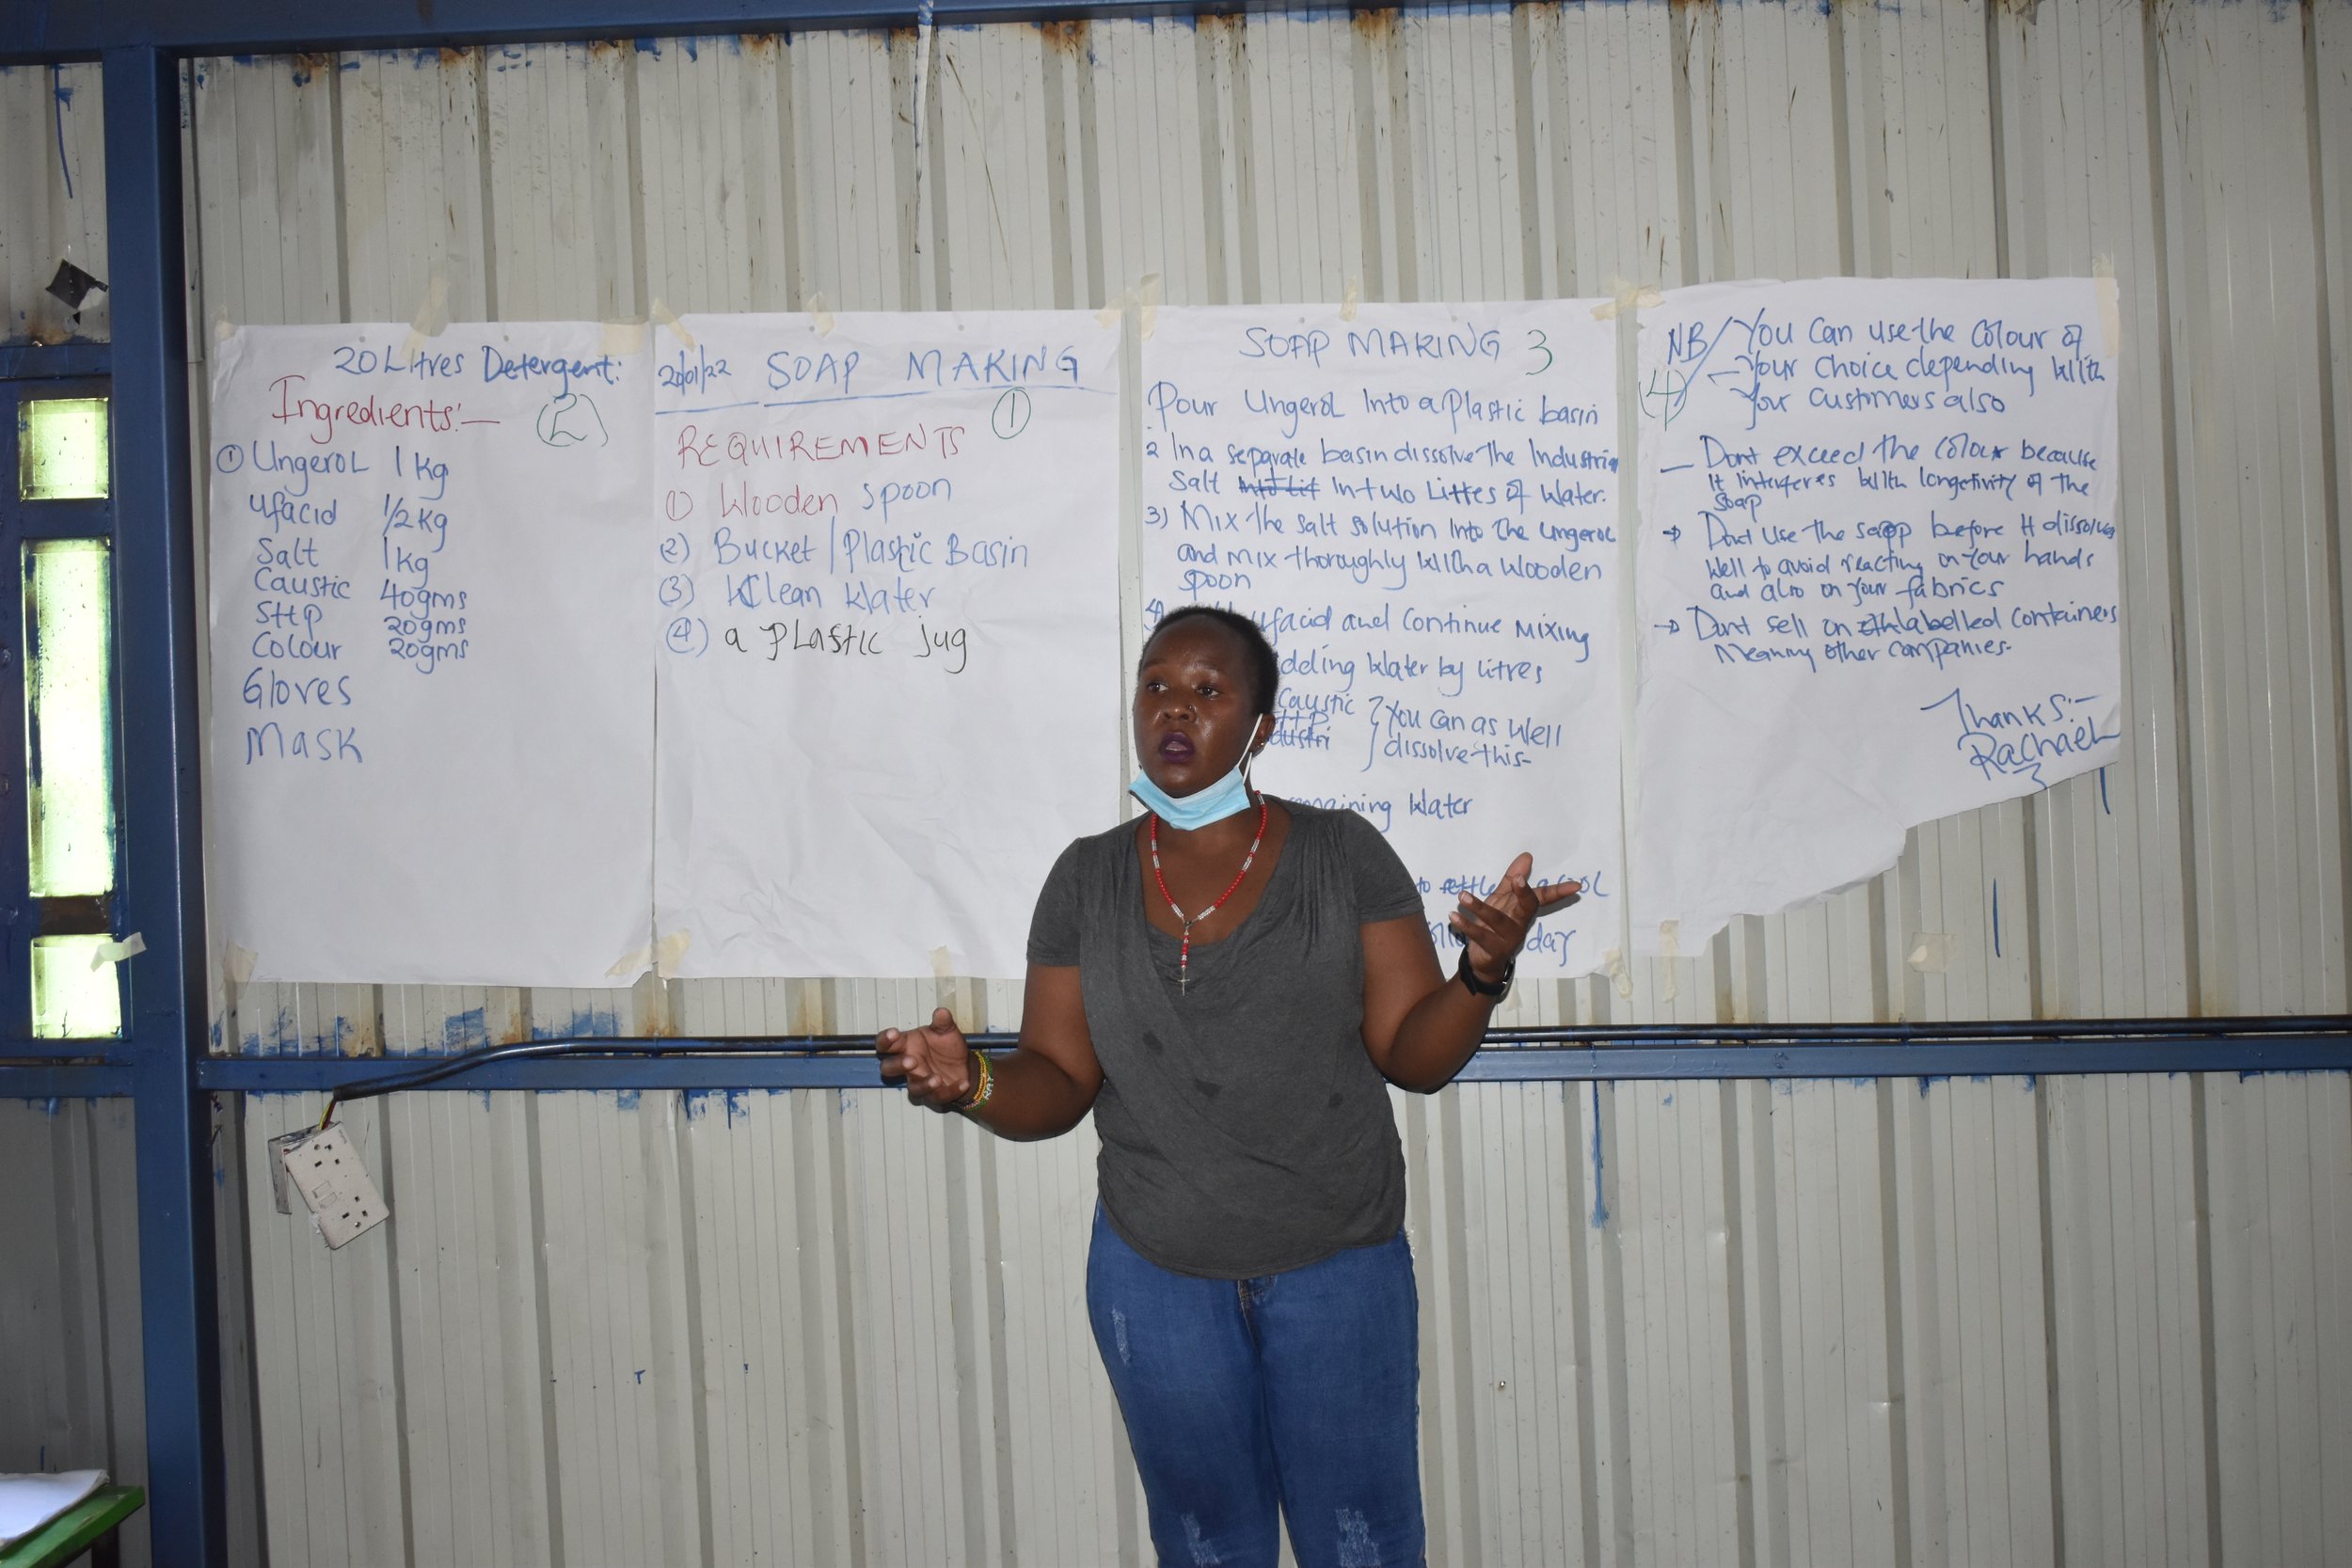 20 Litres Detergent:
Ingredients:-
(2)
① Ungerol 1 kg
Ufacid 1/2 kg
Salt 1 kg
Caustic 40gms
STTP 20gms
Colour 20gms
Gloves
Mask
20/01/22 SOAP MAKING
①
REQUIREMENTS
① Wooden spoon
(2) Bucket / Plastic Basin
(3) Clean Water
(4) a Plastic jug
SOAP MAKING 3
Pour Ungerol Into a Plastic basin
2 In a separate basin dissolve the Industria
Salt into lit In two Litres of Water.
3) Mix the salt solution Into the Ungerol
and mix thoroughly With a Wooden
spoon
4) ufacid and Continue Mixing
dding Water by Litres
Caustic
You Can as Well
dustri
dissolve this-
maining Water
to
day
NB/ You Can use the Colour of
- Your Choice depending With
(4)
Your Customers also
- Dont exceed the Colour because
It interferes With longetivity of The
Soap
→ Dont Use the soap before It dissolves
Well to avoid reacting on Your hands
and also on Your fabrics
→ Dont sell on labelled Containers
Meaning Other Companies.
Thanks:-
Rachael
RAY